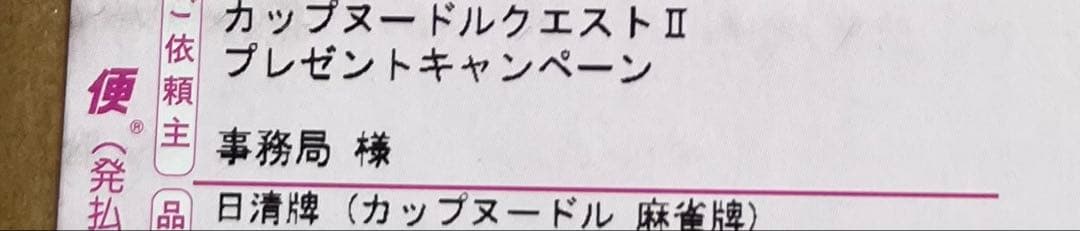 カップヌードルクエストⅡ
プレゼントキャンペーン
事務局 様
日清牌（カップヌードル 麻雀牌）
ご依頼主
品
便®（発払